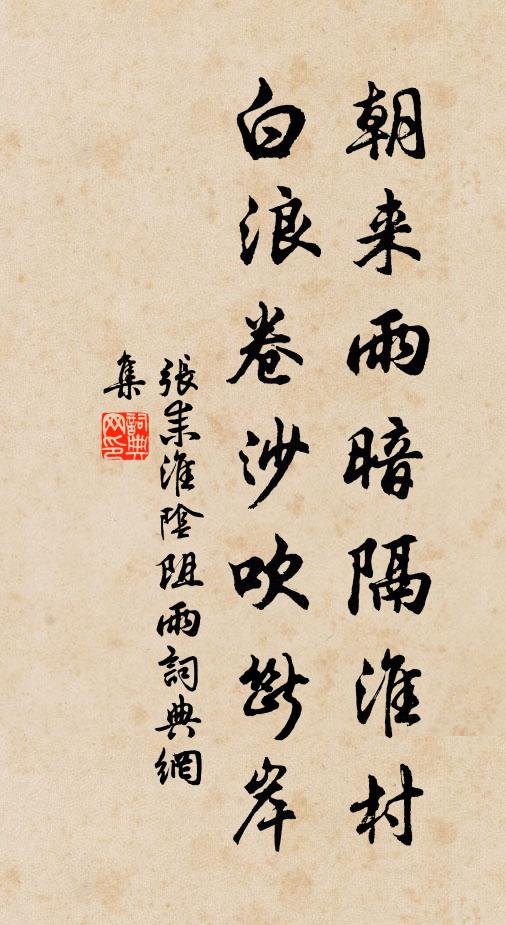 朝来雨暗隔淮村
白浪卷沙吹斷岸
張耒淮陰阻雨詞典網
集
詞典网印